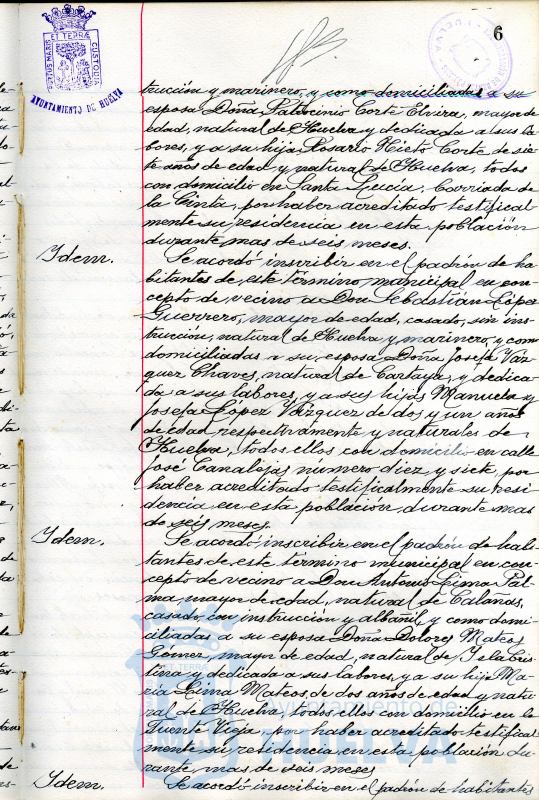 6
PORTUS MARIS ET TERRÆ CUSTODIA
AYUNTAMIENTO DE HUELVA
trucción y marinero, y como domiciliadas a su
esposa Doña Patrocinio Corté Elvira, mayor de
edad, natural de Huelva y dedicada a sus la-
bores, y a su hija Rosario Nieto Corté de sie-
te años de edad y natural de Huelva, todos
con domicilio en Santa Lucia, barriada de
la Cinta, por haber acreditado testifical-
mente su residencia en esta población
durante mas de seis meses.
Idem.
Se acordó inscribir en el padrón de ha-
bitantes de este término municipal en con-
cepto de vecino a Don Sebastián López
Guerrero, mayor de edad, casado, sin ins-
trucción, natural de Huelva y marinero, y como
domiciliadas a su esposa Doña Josefa Váz-
quez Chaves, natural de Cartaya, y dedica-
da a sus labores, y a sus hijas Manuela y
Josefa López Vázquez de dos y un años
de edad respectivamente y naturales de
Huelva, todos ellos con domicilio en calle
José Canalejas numero diez y siete, por
haber acreditado testificalmente su resi-
dencia en esta población durante mas
de seis meses.
Idem.
Se acordó inscribir en el padrón de habi-
tantes de este termino municipal en con-
cepto de vecino a Don Antonio Lima Pal-
ma mayor de edad, natural de Calañas,
casado, con instruccion y albañil, y como domi-
ciliadas a su esposa Doña Dolores Mateos
Gómez, mayor de edad, natural de Isla Cris-
tina y dedicada a sus labores, y a su hija Ma-
ria Lima Mateos, de dos años de edad y natu-
ral de Huelva, todos ellos con domicilio en la
Fuente Vieja por haber acreditado testifical
mente su residencia en esta población du-
rante mas de seis meses
Idem.
Se acordó inscribir en el padrón de habitantes
Ayuntamiento de
HUELVA